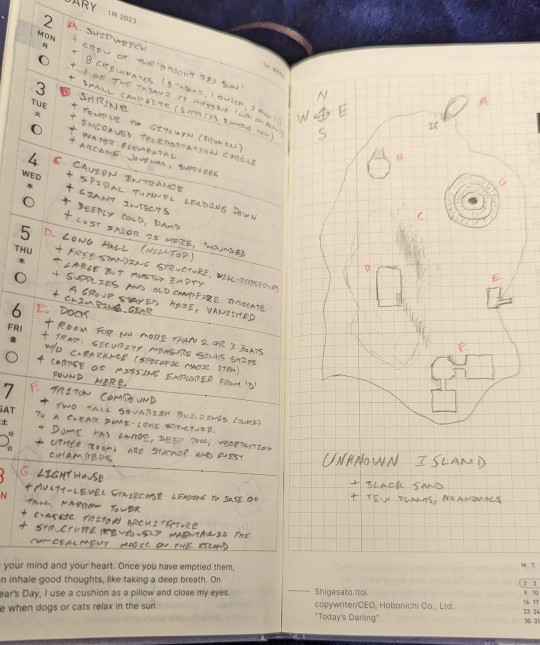 ARY 1月 2023
1st WEEK
2
MON
月
A. SHIPWRECK
+ CREW OF THE "BRIGHT RED SUN"
+ 8 CREWMATES
+ 1 OF THE IS MISSING
+ SMALL CAMPSITE
3
TUE
火
B. SHRINE
+ TEMPLE TO (BROKEN)
+ ENGRAVED TELEPORTATION CIRCLE
+ WATER ELEMENTAL
+ ARCANE JOURNAL, SUPPLIES
4
WED
水
C. CAVERN ENTRANCE
+ SPIRAL TUNNEL LEADING DOWN
+ GIANT INSECTS
+ DEEPLY COLD, DAMP
+ LOST SAILOR IS HERE, WOUNDED
5
THU
木
D. LONG HALL (HILLTOP)
+ FREE-STANDING STRUCTURE, WELL-PRESERVED
+ LARGE BUT MOSTLY EMPTY
+ SUPPLIES AND OLD CAMPFIRE INDICATE
A GROUP STAYED HERE, VANISHED
+ CLIMBING GEAR
6
FRI
金
E. DOCK
+ ROOM FOR NO MORE THAN 2 OR 3 BOATS
+ TRAP: SECURITY MEASURE SINKS SHIPS
W/O CLEARANCE (SPECIFIC MAGIC ITEM)
+ CORPSE OF MISSING EXPLORER FROM 'D'
FOUND HERE.
7
SAT
土
F. TRITON COMPOUND
+ TWO TALL SQUARISH BUILDINGS LINKED
TO A CLEAR DOME-LIKE STRUCTURE.
+ DOME HAS LARGE, DEEP POOL, VEGETATION
+ OTHER ROOMS ARE STORAGE AND GUEST
CHAMBERS
8
G. LIGHTHOUSE
+ MULTI-LEVEL STAIRCASE LEADING TO BASE OF
TALL, NARROW TOWER
+ CLASSIC TRITON ARCHITECTURE
+ STRUCTURE PREVIOUSLY MAINTAINED THE
CONCEALMENT MAGIC ON THE ISLAND
your mind and your heart. Once you have emptied them,
n inhale good thoughts, like taking a deep breath. On
ear's Day, I use a cushion as a pillow and close my eyes.
e when dogs or cats relax in the sun.
N
W E
S
A
B
G
C
D
E
F
UNKNOWN ISLAND
+ BLACK SAND
+ FEW PLANTS, NO ANIMALS
Shigesato Itoi
copywriter/CEO, Hobonichi Co., Ltd.
"Today's Darling"
M T
2 3
9 10
16 17
23 24
30 31